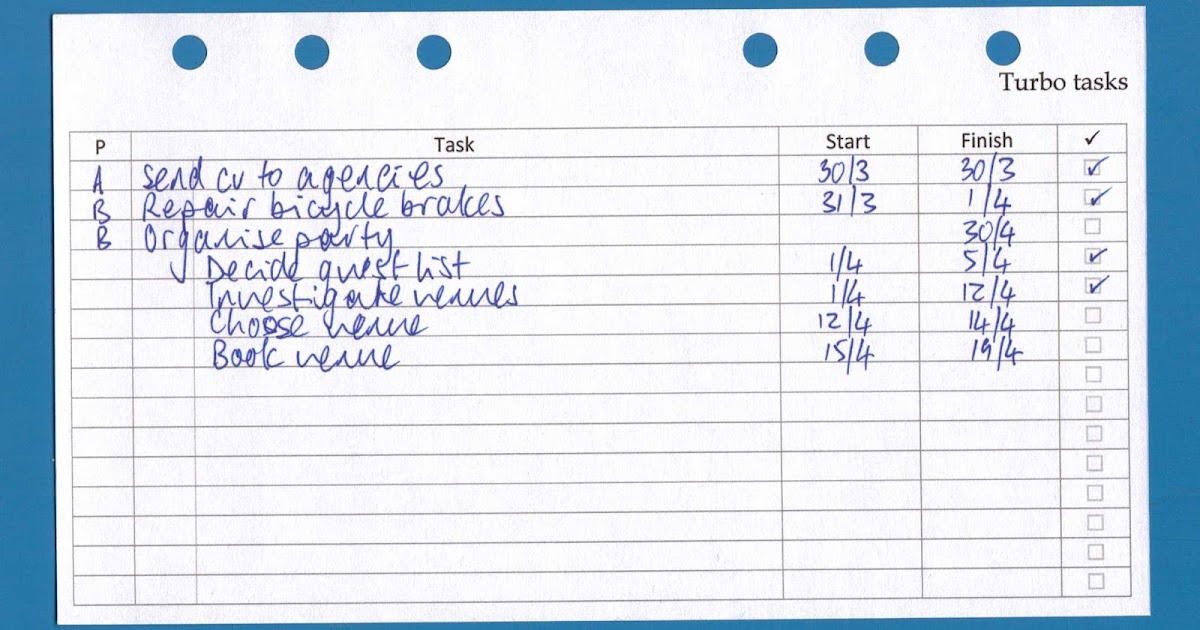 Turbo tasks
P Task Start Finish ✓
A Send cv to agencies 30/3 30/3 ✓
B Repair bicycle brakes 31/3 1/4 ✓
B Organise party 30/4
Decide guest list 1/4 5/4 ✓
Investigate venues 1/4 12/4 ✓
Choose venue 12/4 14/4
Book venue 15/4 19/4